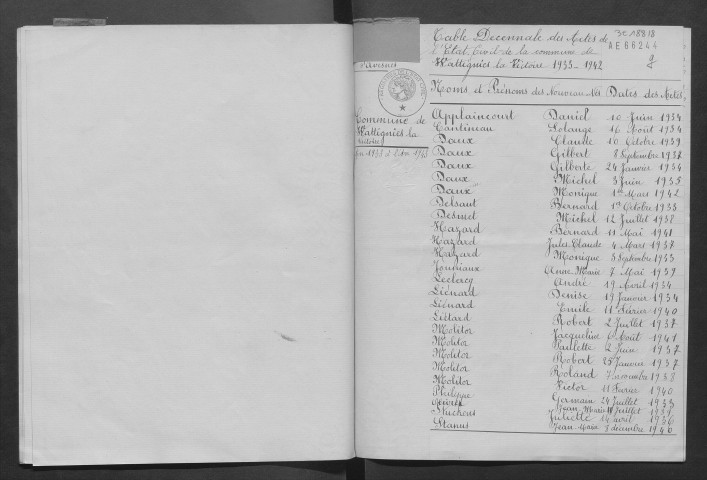 Table Décennale des Actes de
l'Etat Civil de la commune de
Wattignies la Victoire 1933-1942
3E18818
AE66244
d'Avesnes
Commune de
Wattignies la
Victoire
Noms et Prénoms des Nouveau Nés Dates des Actes
Applaincourt Daniel 10 Juin 1934
Cantineau Solange 16 Août 1934
Daux Claude 10 Octobre 1939
Daux Gilbert 8 Septembre 1937
Daux Gilberte 24 Janvier 1934
Daux Michel 3 Juin 1935
Daux Monique 1er Mars 1942
Delsaut Bernard 1er Octobre 1933
Desmet Michel 12 Juillet 1938
Hazard Bernard 11 Mai 1941
Hazard Jules Claude 4 Mars 1937
Hazard Monique 3 Septembre 1933
Jouniaux Anne Marie 7 Mai 1939
Leclercq André 19 Avril 1934
Liénard Denise 19 Janvier 1934
Liénard Emile 11 Février 1940
Liétard Robert 2 Juillet 1937
Molitor Jacqueline 6 Août 1941
Molitor Paulette 2 Juin 1937
Molitor Robert 25 Janvier 1937
Molitor Roland 7 Décembre 1938
Molitor Victor 11 Février 1940
Philippe Germain 24 Juillet 1933
Jean Marie Juillet 1939
Stuckens Juliette 14 avril 1936
Stanus Jean Marie 3 décembre 1940